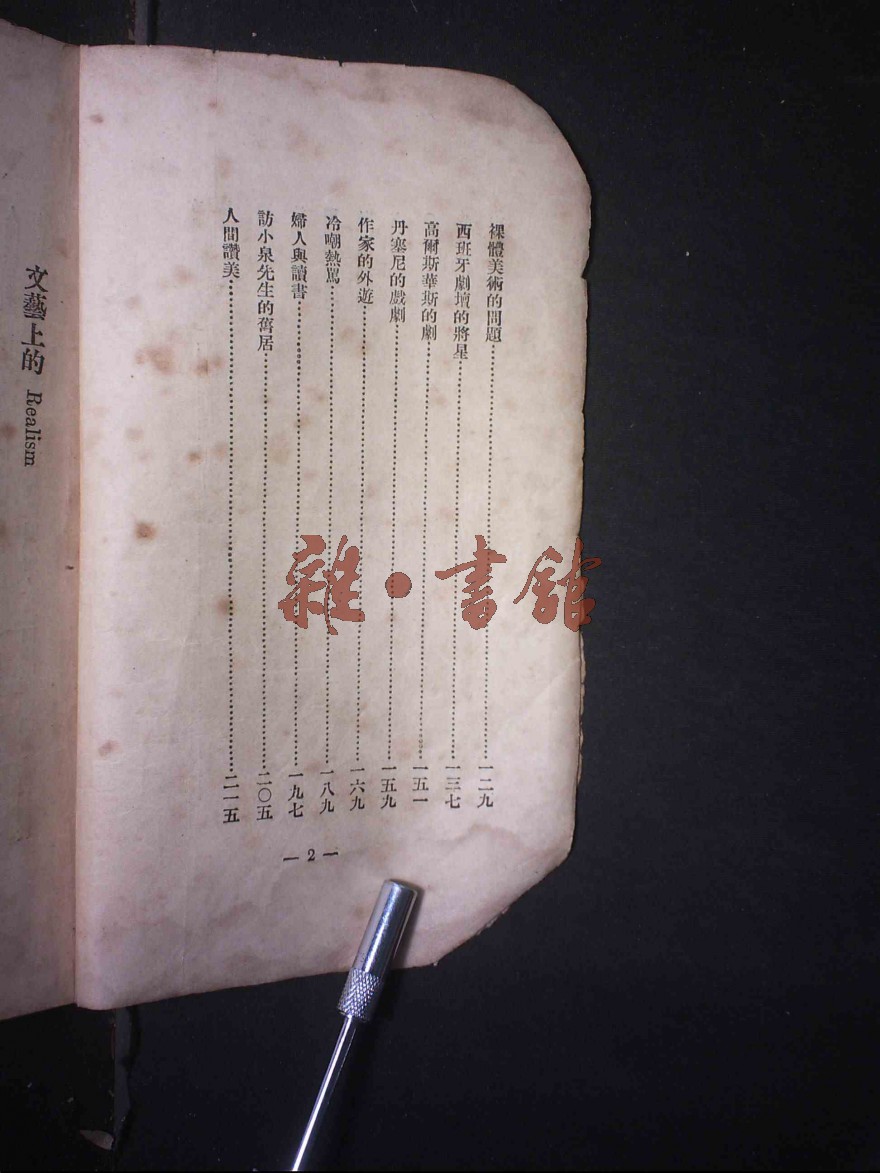 裸體美術的問題……一二九
西班牙劇壇的將星……一三七
高爾斯華斯的劇……一五一
丹塞尼的戲劇……一五九
作家的外遊……一六九
冷嘲熱罵……一八九
婦人與讀書……一九七
訪小泉先生的舊居……二〇五
人間讚美……二一五
— 2 —
文藝上的 Realism
雜·書館